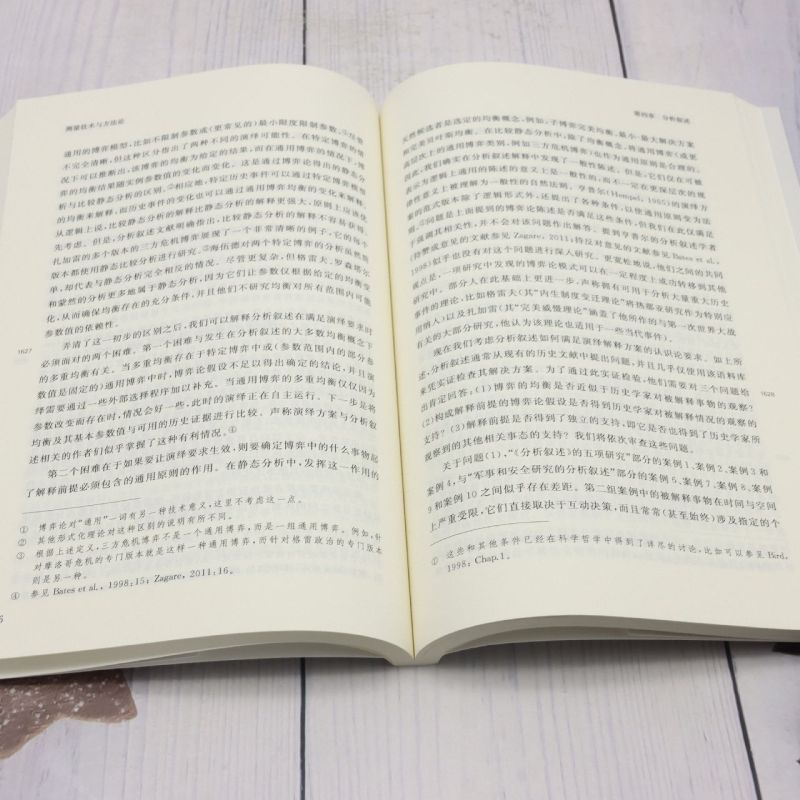 测量技术与方法论
通用的博弈模型，比如不限制参数或(更常见的)最小限度限制参数，①尽管
不完全清晰，但这种区分指出了两种不同的演绎可能性。在特定博弈的情
况下可以推断出，该博弈的均衡为给定的结果，而在通用博弈的情况下，博
弈的均衡结果随实例参数值的变化而变化。这是通过博弈论得出的静态分
析与比较静态分析的区别。②相应地，特定历史事件可以通过特定博弈模型
的均衡来解释，而历史事件的变化也可以通过通用博弈均衡的变化来解释。
从逻辑上说，比较静态分析的解释比静态分析的解释更强大，原则上应该优
先考虑。但是，分析叙述文献明确指出，比较静态分析的解释不容易获得。
扎加雷的多个版本的三方危机博弈展现了一个非常清晰的例子，它的每个
版本都使用静态比较分析进行研究。③海伍德对两个特定博弈的分析虽然简
单，却代表与静态分析完全相反的情况。尽管更复杂，但格雷夫、罗森塔尔
和蒙然的分析更多地属于静态分析，因为它们让参数仅根据给定的均衡变
化，从而确保均衡存在的充分条件，并且他们不研究均衡对所有范围内可能
参数值的依赖性。
弄清了这一初步的区别之后，我们可以解释分析叙述在满足演绎要求时
1627
必须面对的两个困难。第一个困难与发生在分析叙述的大多数均衡概念下
的多重均衡有关。当多重均衡存在于特定博弈中或(参数范围内的部分参
数值是固定的)通用博弈中时，博弈论假设不足以得出确定的结论，并且演
绎需要通过一些外部选择程序加以补充。当通用博弈的多重均衡仅仅因为
参数改变而存在时，情况会好一些，此时的演绎正在自主运行。下一步是将
均衡及其基本参数值与可用的历史证据进行比较。声称演绎方案与分析叙
述相关的作者们似乎掌握了这种有利情况。④
第二个困难在于如果要让演绎要求生效，则要确定博弈中的什么事物起
了解释前提必须包含的通用原则的作用。在静态分析中，发挥这一作用的
① 博弈论对“通用”一词有另一种技术意义，这里不考虑这一点。
② 其他形式化理论对这种区别的说明有所不同。
③ 根据上述定义，三方危机博弈不是一个通用博弈，而是一组通用博弈。例如，针
对摩洛哥危机的专门版本就是这样一种通用博弈，而针对格雷政治的专门版本
则是另一种。
④ 参见 Bates et al., 1998:15; Zagare, 2011:16。
6
第四章 分析叙述
天然候选者是选定的均衡概念，例如，子博弈完美均衡、最小-最大解决方案
和完美贝叶斯均衡。在比较静态分析中，除了均衡概念，将通用博弈(或更
高层次上的通用博弈类别，例如三方危机博弈)也作为通用原则是合理的。
因此，我们确实在分析叙述解释中发现了一般性陈述。但是，它们仅在可被
表示为逻辑上通用的陈述的意义上是一般性的，而不一定在更深层次的规
律性意义上被理解为一般性的自然法则。亨普尔(Hempel, 1965)的演绎方
案的范式版本除了逻辑形式外，还提出了各种条件，以使通用原则变为法
则。①问题是上面提到的博弈论陈述是否满足这些条件，但我们在此仅满足
于强调其相关性，并不会对该问题作出解答。提到亨普尔的分析叙述学者
(持赞成意见的文献参见 Zagare, 2011;持反对意见的文献参见 Bates et al.,
1998)似乎也没有对这个问题进行深入研究。更宽松地说，他们之间的共同
观点是，一项研究中发现的博弈论模式可以在一定程度上成功转移到其他
研究中。部分人在此基础上更进一步，声称拥有可用于分析大量重大历史
事件的理论，比如格雷夫(其“内生制度变迁理论”将热那亚研究作为特别应
用纳入)以及扎加雷(其“完美威慑理论”涵盖了他所作的与第一次世界大战
有关的大部分研究，他认为该理论也适用于一些当代事件)。
现在我们考虑分析叙述如何满足演绎解释方案的认识论要求。如上所
述，分析叙述通常从现有的历史文献中提出问题，并且几乎仅使用该语料库
来凭实证检查其解决方案。为了通过此实证检验，他们需要对三个问题给
出肯定回答：(1)博弈的均衡是否近似于历史学家对被解释事物的观察?
1628
(2)构成解释前提的博弈论假设是否得到历史学家对被解释情况的观察的
支持？(3)解释前提是否得到了独立的支持，即它是否也得到了历史学家所
观察到的其他相关事态的支持？我们将依次审查这些问题。
关于问题(1)，“《分析叙述》的五项研究”部分的案例1、案例2、案例3和
案例4，与“军事和安全研究的分析叙述”部分的案例6、案例7、案例8、案例
9和案例10之间似乎存在差距。第二组案例中的被解释事物在时间与空间
上严重受限，它们直接取决于互动决策，而且常常(甚至始终)涉及指定的个
① 这些和其他条件已经在科学哲学中得到了详尽的讨论，比如可以参见 Bird,
1998: Chap.1。